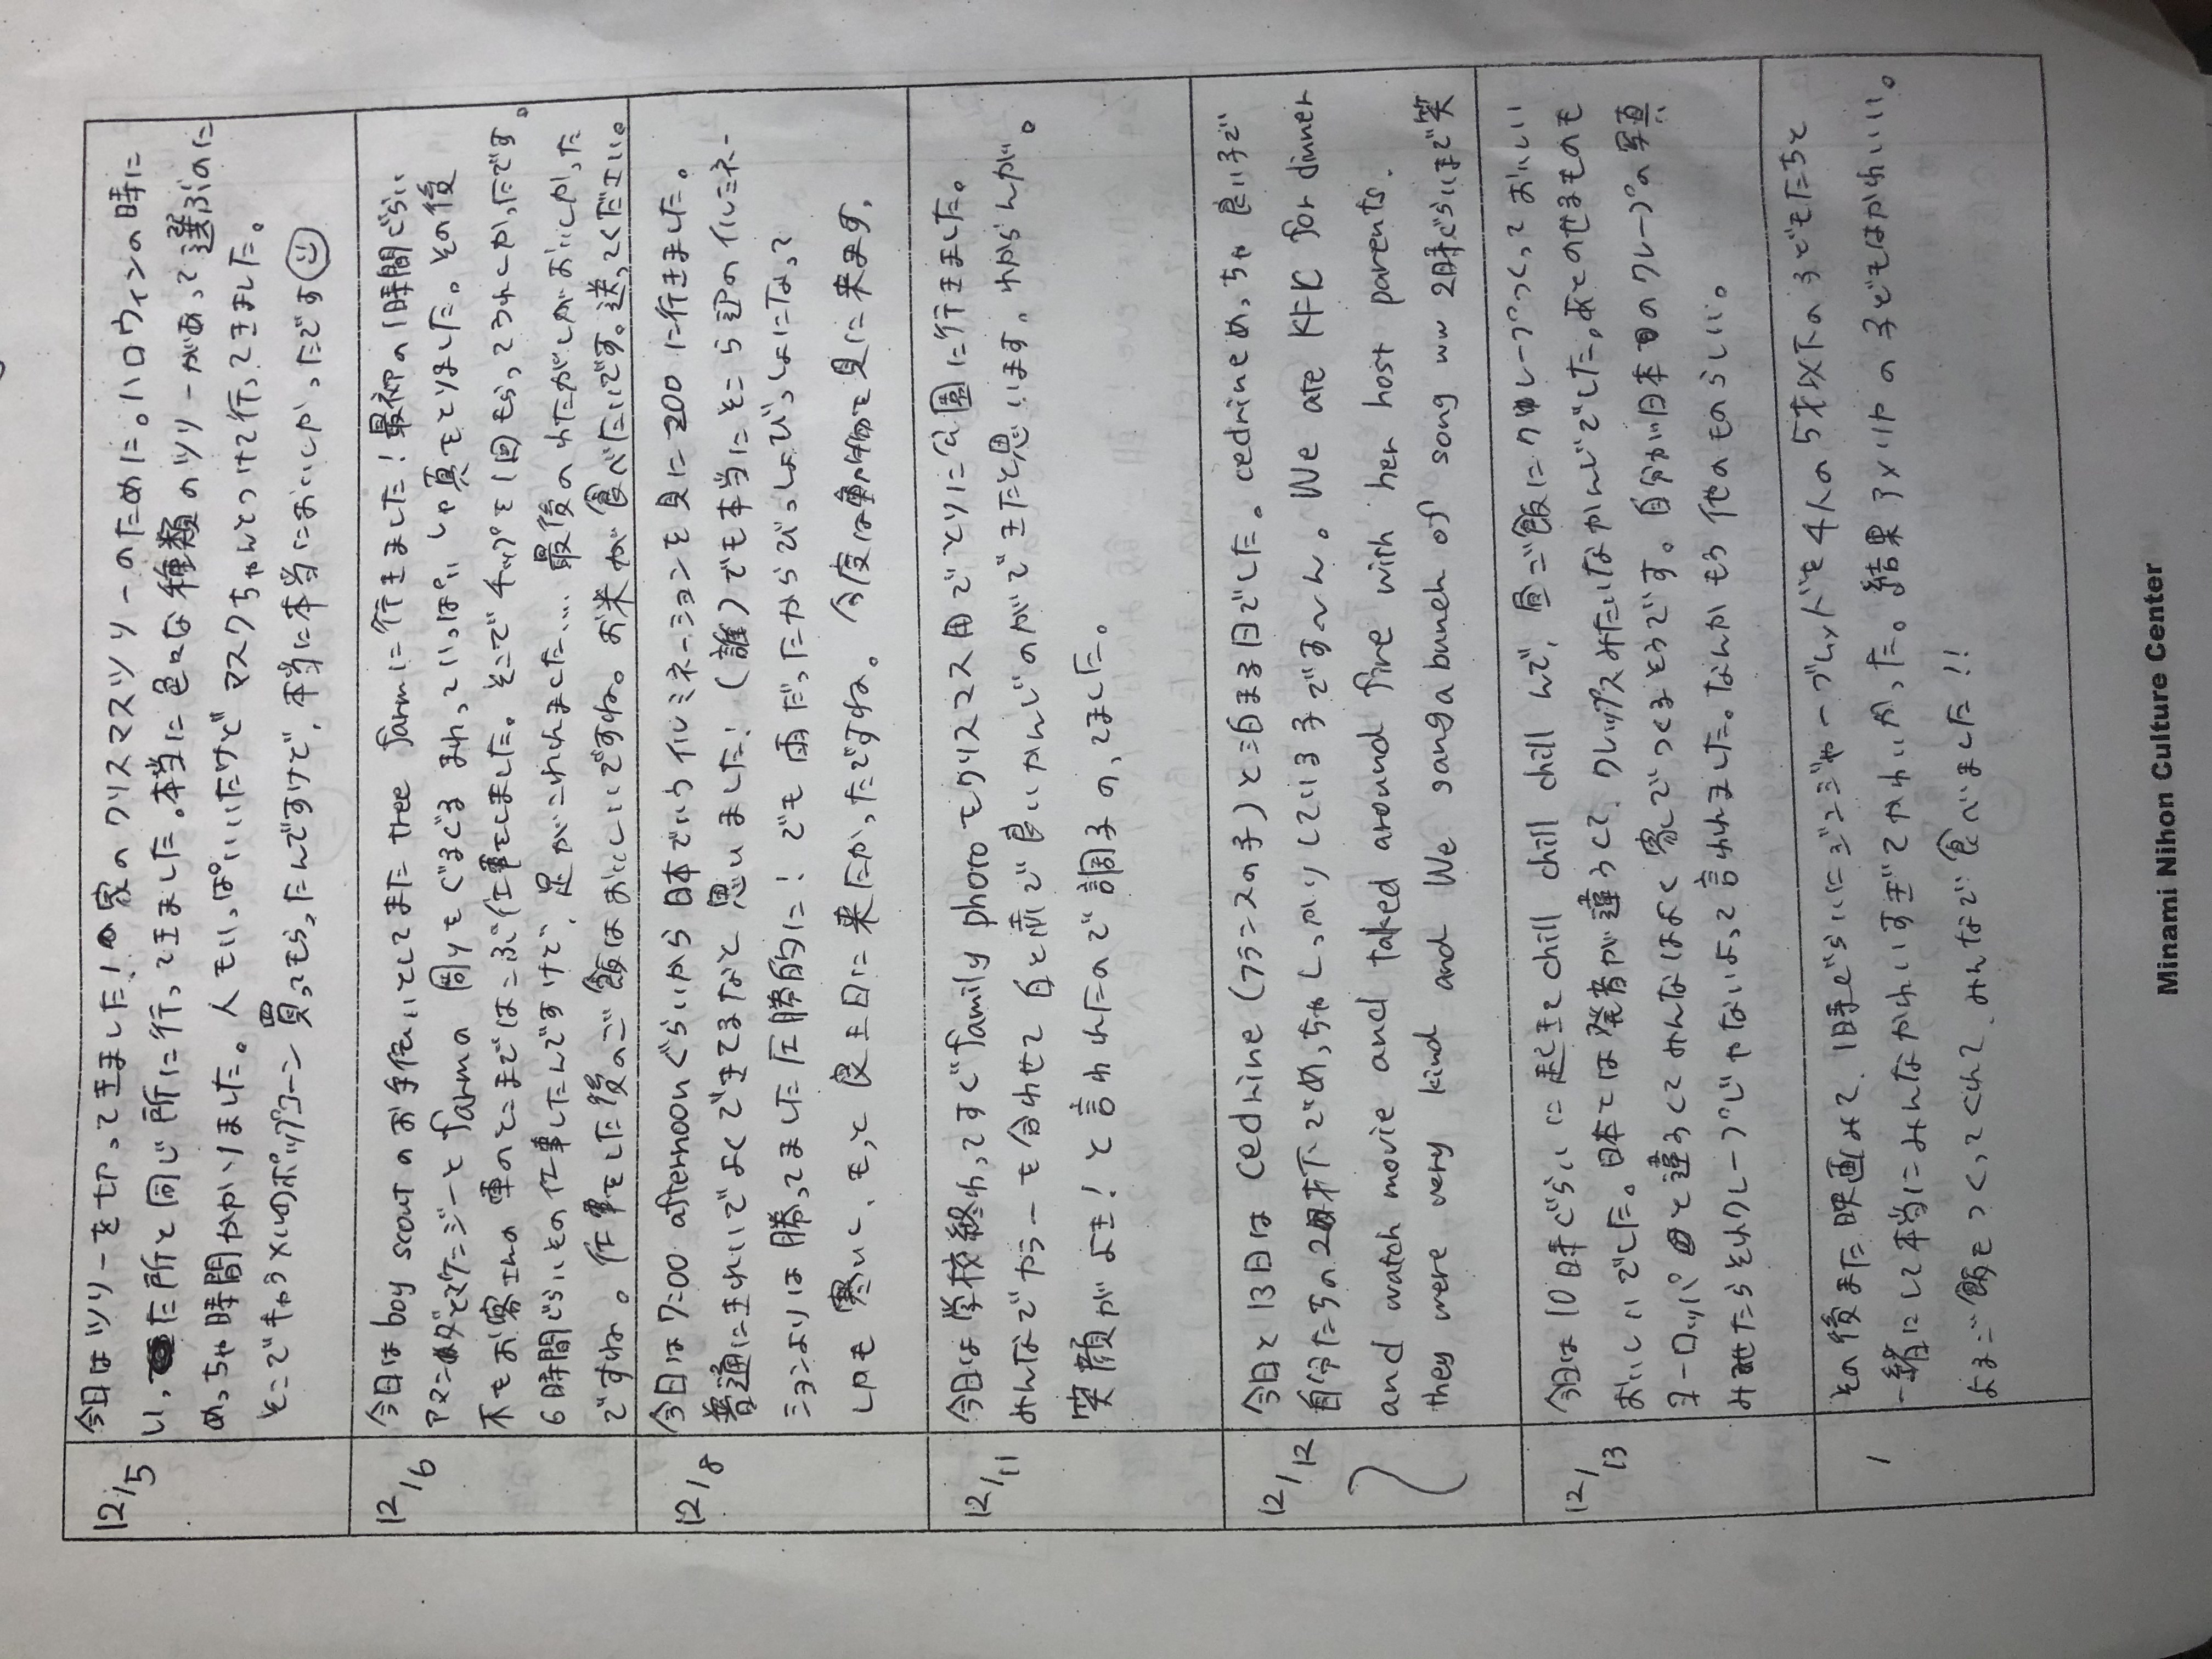 12/5
今日はツリーを切ってきました！家のクリスマスツリーのために。ハロウィンの時に
いった所と同じ所に行ってきました。本当に色々な種類のツリーがあって選ぶのに
めっちゃ時間かかりました。人もいっぱいいたけどマスクちゃんとつけて行ってきました。
そこでキャラメルのポップコーン買ってもらったんですけど、本当に本当においしかったです☺
12/6
今日は boy scout のお手伝いとしてまた tree farmに行きました！最初の1時間ぐらい
アマンダとマケンジーと farmの周りをぐるぐるまわっていっぱいしゃ真をとりました。その後
木をお客さんの車のとこまではこぶ仕事をしました。そこでチップを1回もらってうれしかったです。
6時間ぐらいその仕事したんですけど、足がこわれました.... 最後のわたがしがおいしかった
ですね。仕事をした後のご飯はおいしいですね。お米が食べたいです。送ってください。
12/8
今日は7:00 afternoonぐらいから日本でいうイルミネーションを見に zooに行きました。
普通にきれいでよくできてるなと思いました！（誰）でも本当にそこら辺のイルミネー
ションよりは勝ってました圧勝的に！でも雨だったからびっしょびっしょになって
しかも寒いし、もっと良い日に来たかったですね。今度は動物を見に来ます。
12/11
今日は学校終わってすぐ family photo をクリスマス用でとりに公園に行きました。
みんなでカラーを合わせて白と赤で良いかんじのができたと思います。わからんが。
笑顔がよき！と言われたので調子のってました。
12/12
今日と13日は cedrine（フランスの子）と泊まる日でした。cedrineめっちゃ良い子で
自分たちの2才下でめっちゃしっかりしている子です〜ん。We ate KFC for dinner
and watch movie and talked around fire with her host parents.
they were very kind and We sang a bunch of song ww 2時ぐらいまで笑
12/13
今日は10時ぐらいに起きて chill chill chill んで、昼ご飯にクレープつくっておいしい
おいしいでした。日本とは発音が違うくて、クレップスみたいなかんじでした。あとのせるものも
ヨーロッパと違うくてみんなはよく家でつくるそうです。自分が日本のクレープの写真
みせたらそれクレープじゃないよって言われました。なんかもう他のものらしい。
/
その後また映画みて、1時ぐらいにジンジャーブレッドを4人の5才以下の子どもたちと
一緒にして本当にみんなかわいすぎてかわいかった。結果アメリカの子どもはかわいい。
よるご飯をつくってくれて、みんなで食べました!!
Minami Nihon Culture Center